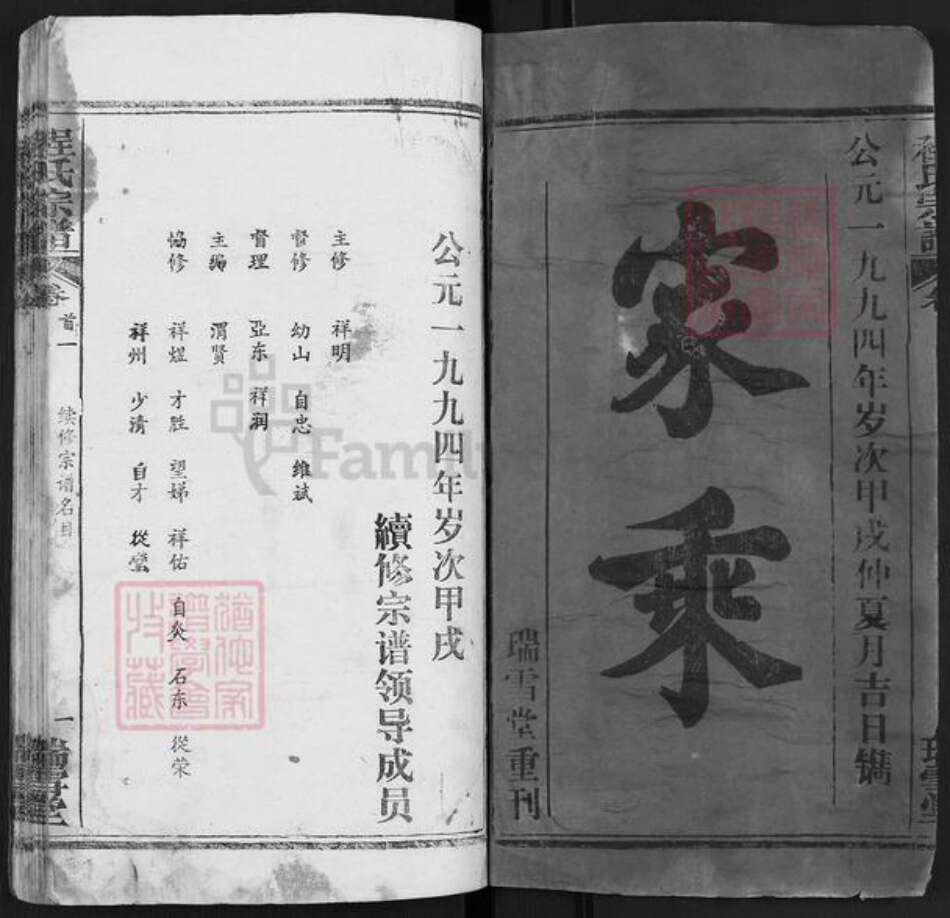 程氏宗譜
公元一九九四年岁次甲戌仲夏月吉日镌
家乘
瑞雪堂重刊
瑞雪堂
公元一九九四年岁次甲戌
續修宗谱领导成员
主修 祥明
督修 幼山 自忠 维斌
督理 亞东 祥润
主编 渭賢
恊修 祥煜 才胜 望娣 祥佑 自炎 石东 從荣
祥州 少清 自才 從蛮
程氏宗譜
卷首一
续修宗谱名目
一
瑞雪堂
Family